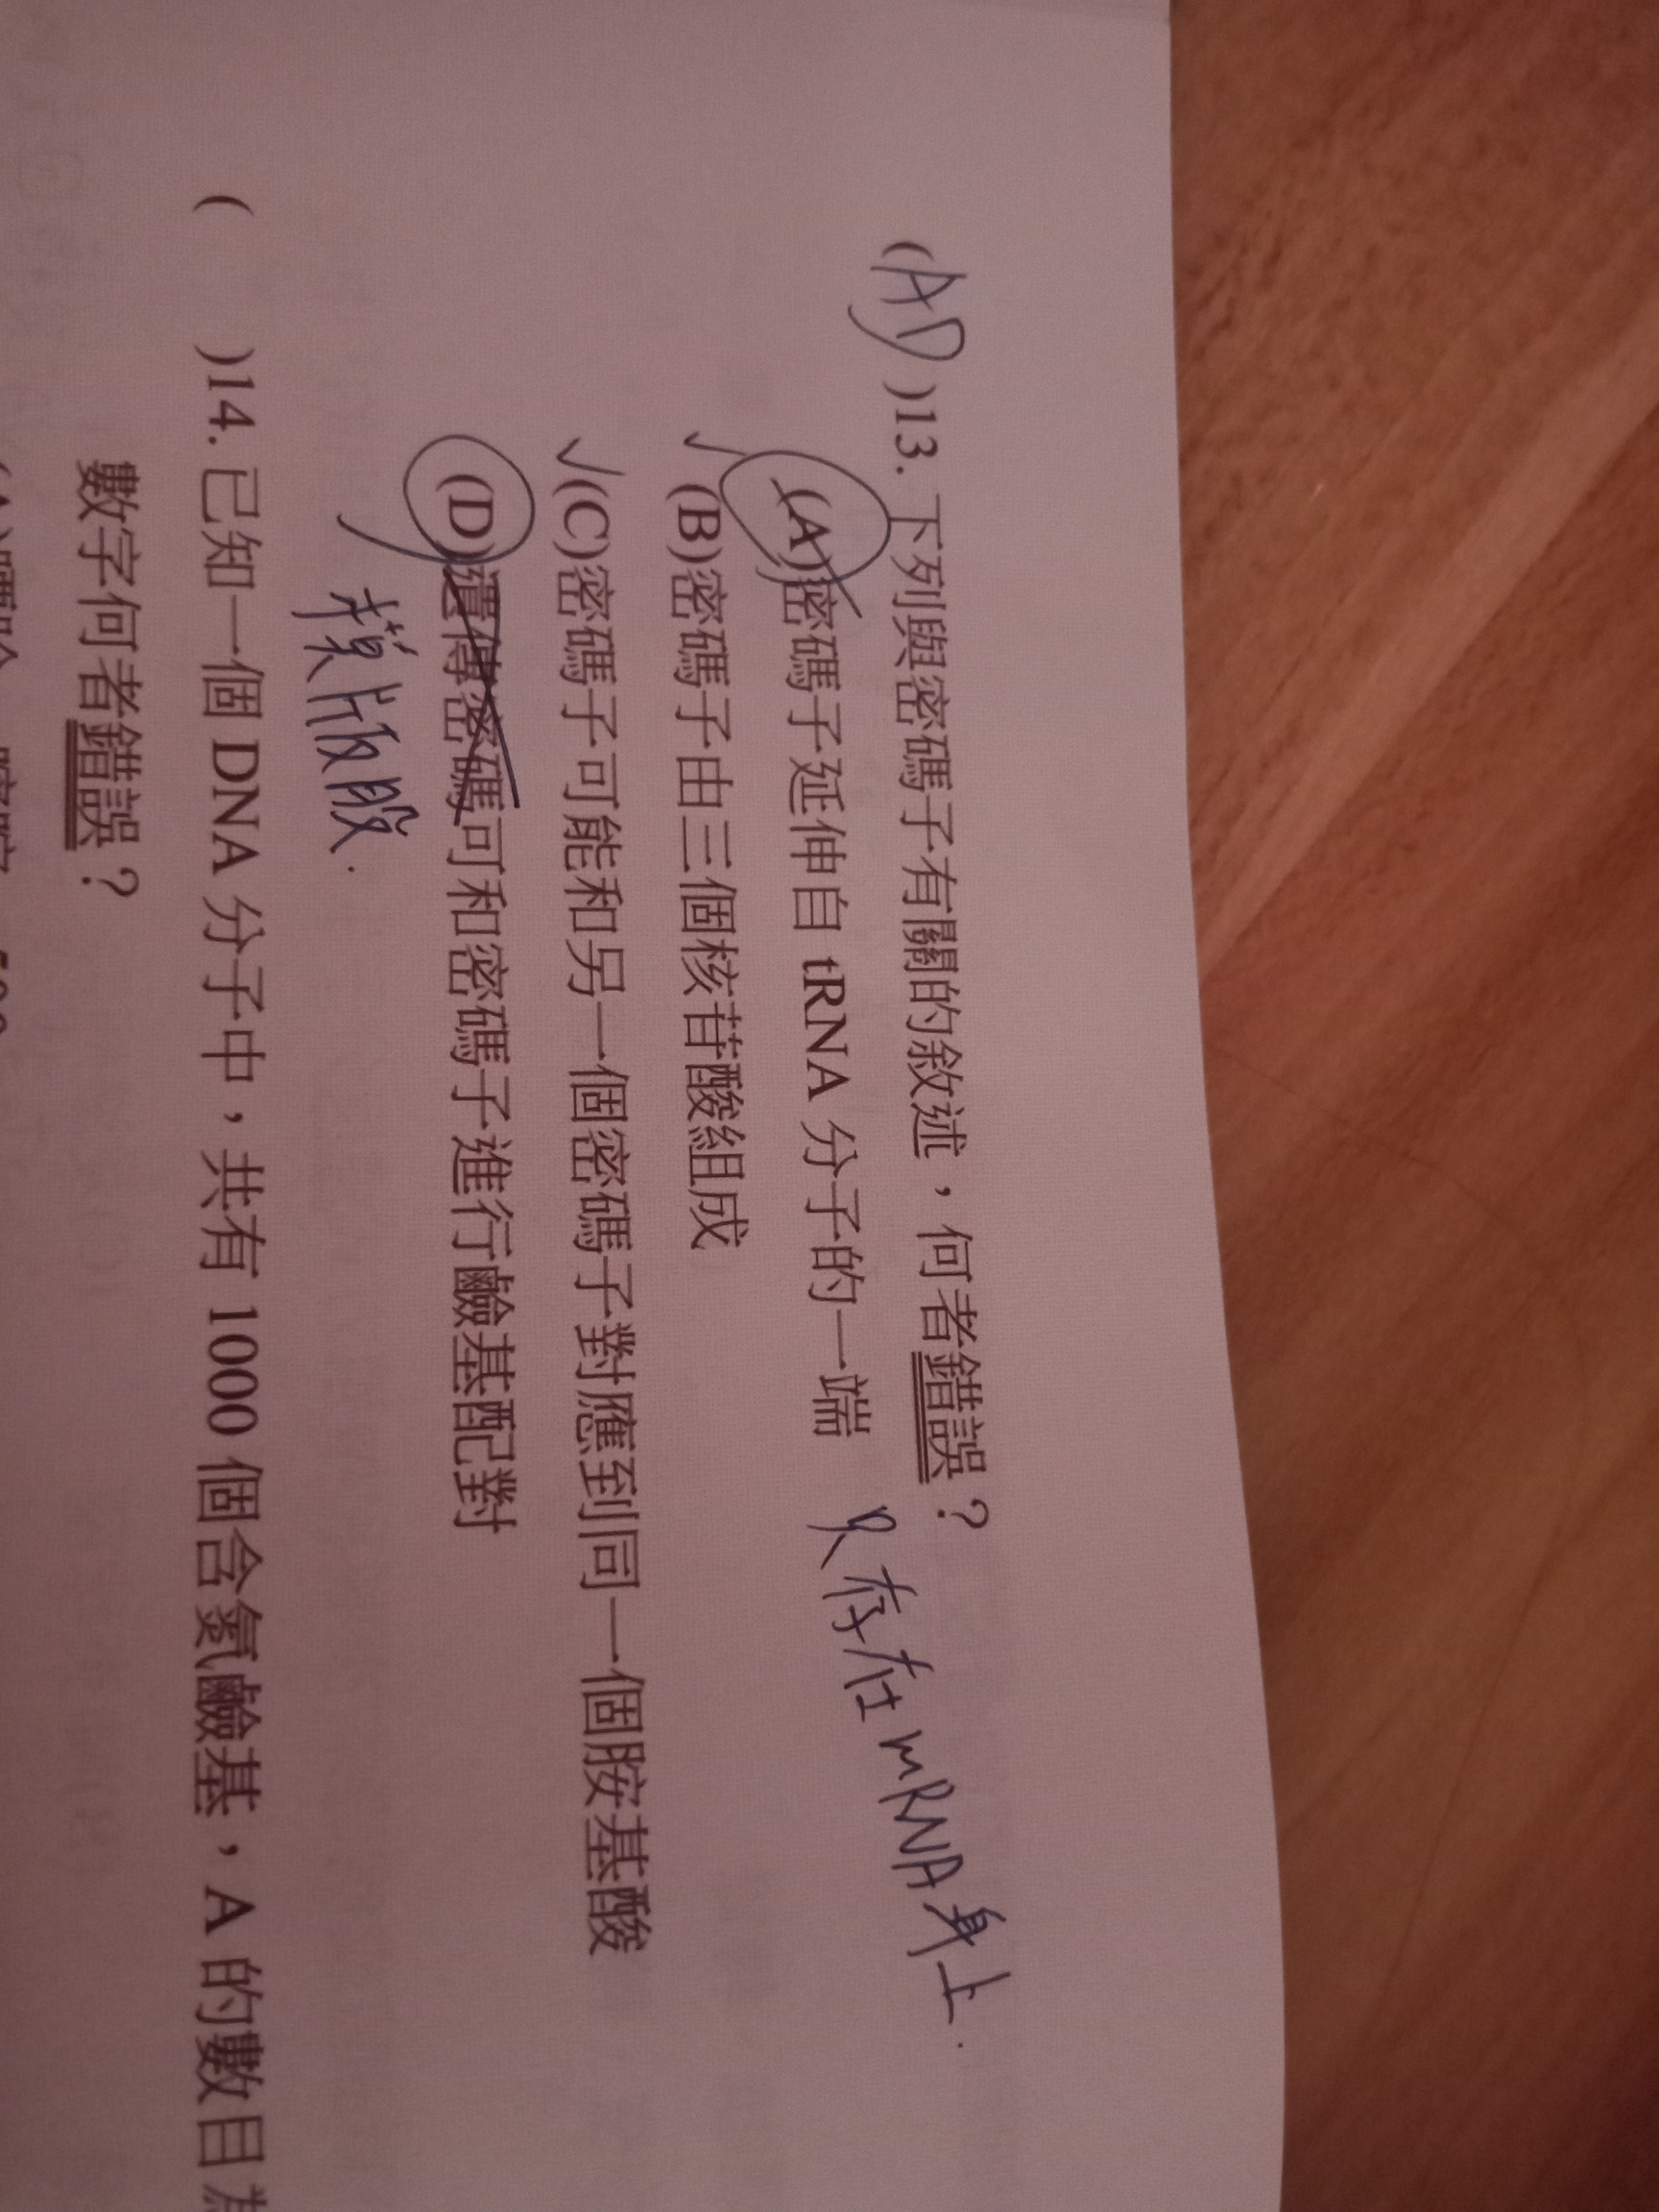 (AD)13. 下列與密碼子有關的敘述，何者錯誤？
(A)密碼子延伸自 tRNA 分子的一端 只存在mRNA身上.
✓(B)密碼子由三個核苷酸組成
✓(C)密碼子可能和另一個密碼子對應到同一個胺基酸
(D)遺傳密碼可和密碼子進行鹼基配對
模版股.
(　)14. 已知一個 DNA 分子中，共有 1000 個含氮鹼基，A 的數目為
數字何者錯誤？